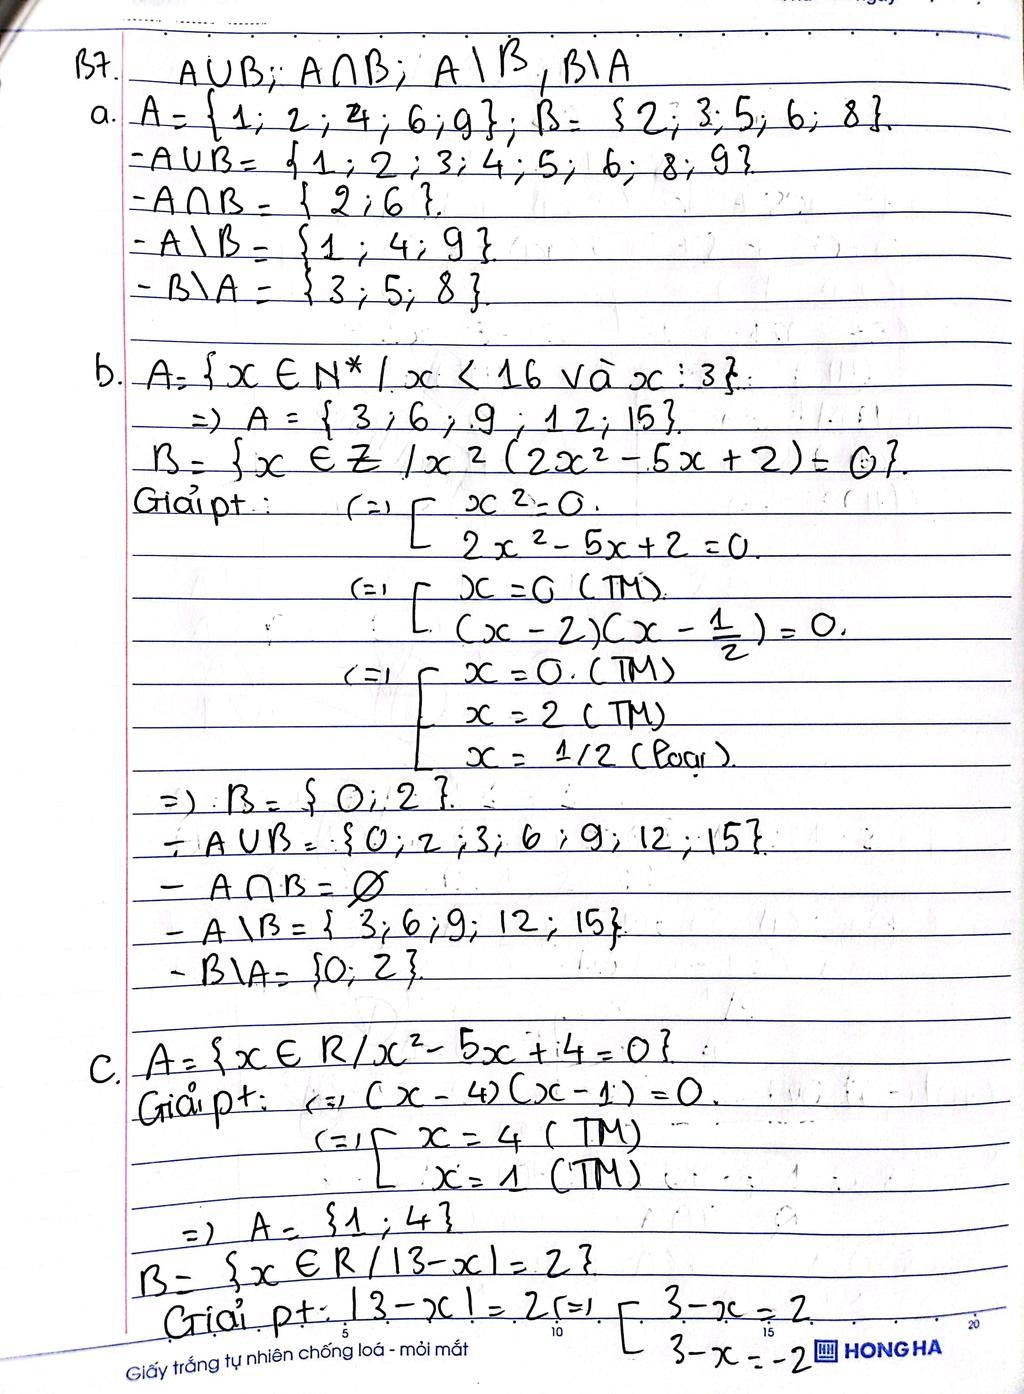 B7. A∪B; A∩B; A\B, B\A
a. A = {1; 2; 4; 6; 9}; B = {2; 3; 5; 6; 8}.
- A∪B = {1; 2; 3; 4; 5; 6; 8; 9}
- A∩B = {2; 6}.
- A\B = {1; 4; 9}
- B\A = {3; 5; 8}.
b. A = {x ∈ N* / x < 16 và x ⋮ 3}.
=) A = {3; 6; 9; 12; 15}.
B = {x ∈ Z / x² (2x² - 5x + 2) = 0}.
Giải pt: (=) [ x² = 0.
2x² - 5x + 2 = 0.
(=) [ x = 0 (TM).
(x - 2)(x - 1/2) = 0.
(=) [ x = 0. (TM)
x = 2 (TM)
x = 1/2 (loại).
=) B = {0; 2}.
- A∪B = {0; 2; 3; 6; 9; 12; 15}
- A∩B = ∅
- A\B = {3; 6; 9; 12; 15}.
- B\A = {0; 2}.
c. A = {x ∈ R / x² - 5x + 4 = 0}
Giải pt: (=) (x - 4)(x - 1) = 0.
(=) [ x = 4 (TM)
x = 1 (TM)
=) A = {1; 4}
B = {x ∈ R / |3 - x| = 2}
Giải pt: |3 - x| = 2 (=) [ 3 - x = 2
3 - x = -2
5 10 15 20
Giấy trắng tự nhiên chống loá - mỏi mắt
HONG HA